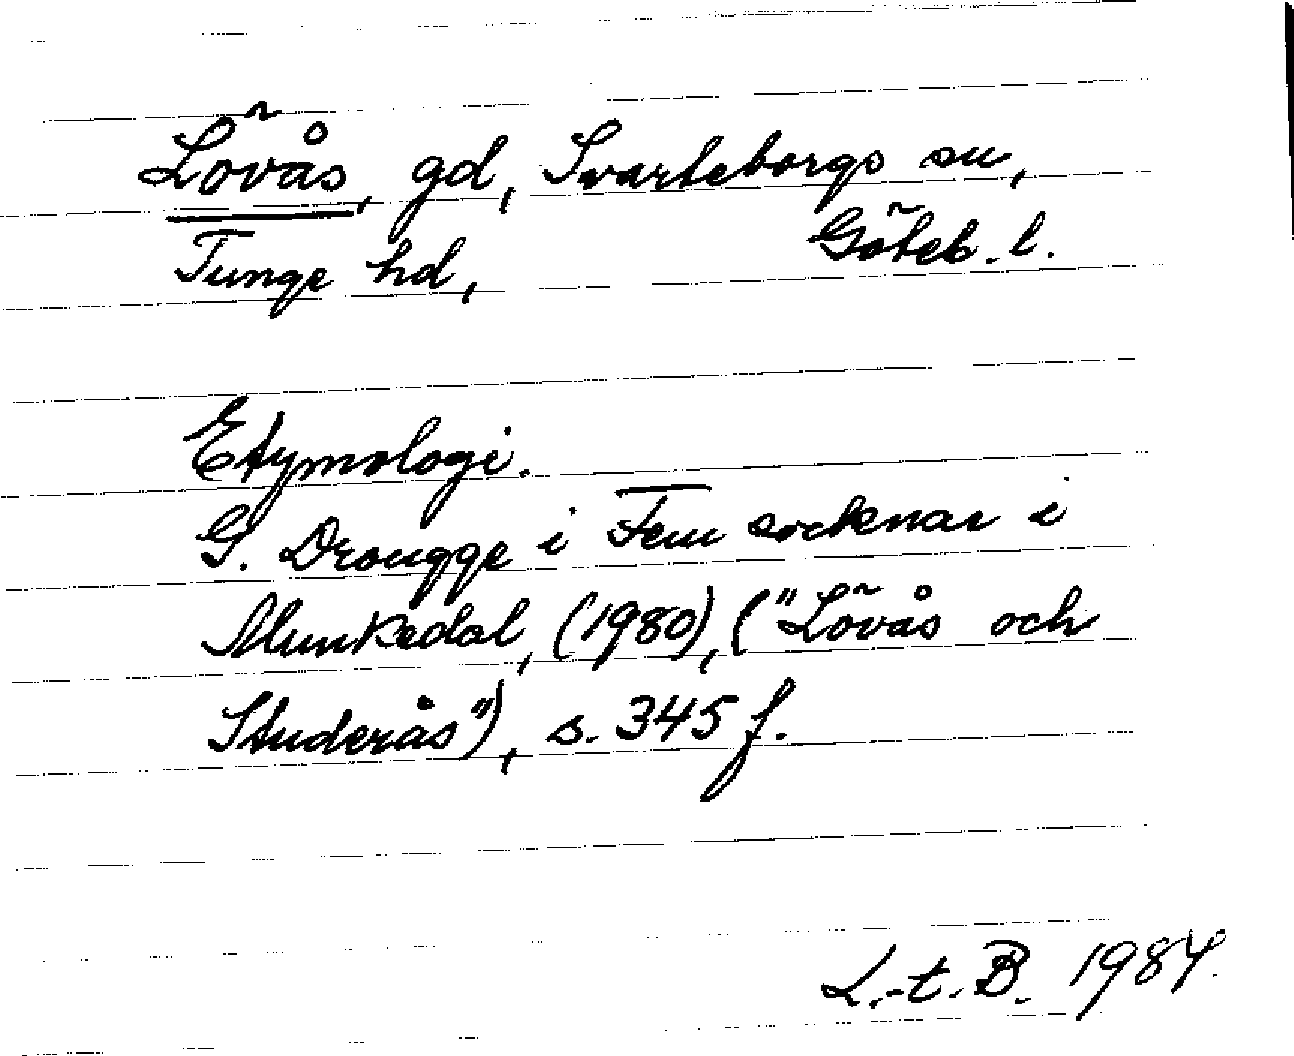 Lövås, gd, Svarteborgs sn,
Tunge hd, Göteb. l.
Etymologi.
G. Drougge i Fem socknar i
Munkedal, (1980), ("Lövås och
Studerås"), s. 345 f.
L.-t. B. 1984.